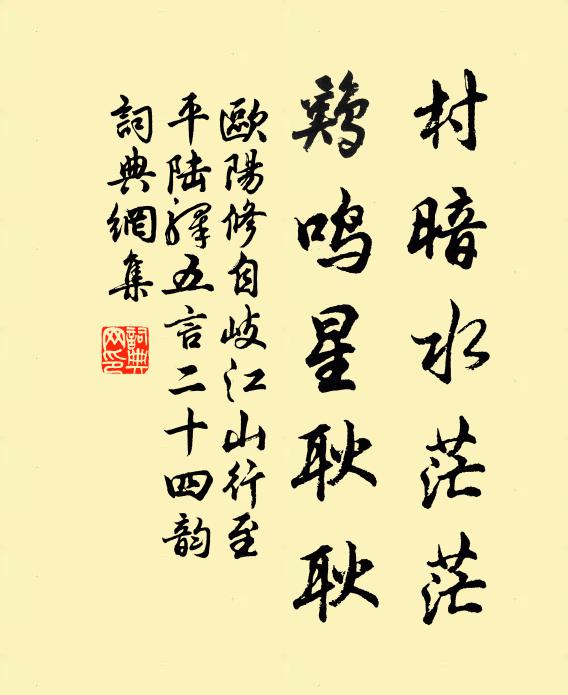 村暗水茫茫
鷄鸣星耿耿
歐陽修自岐江山行至
平陆驛五言二十四韵
詞典網集
詞典
网印